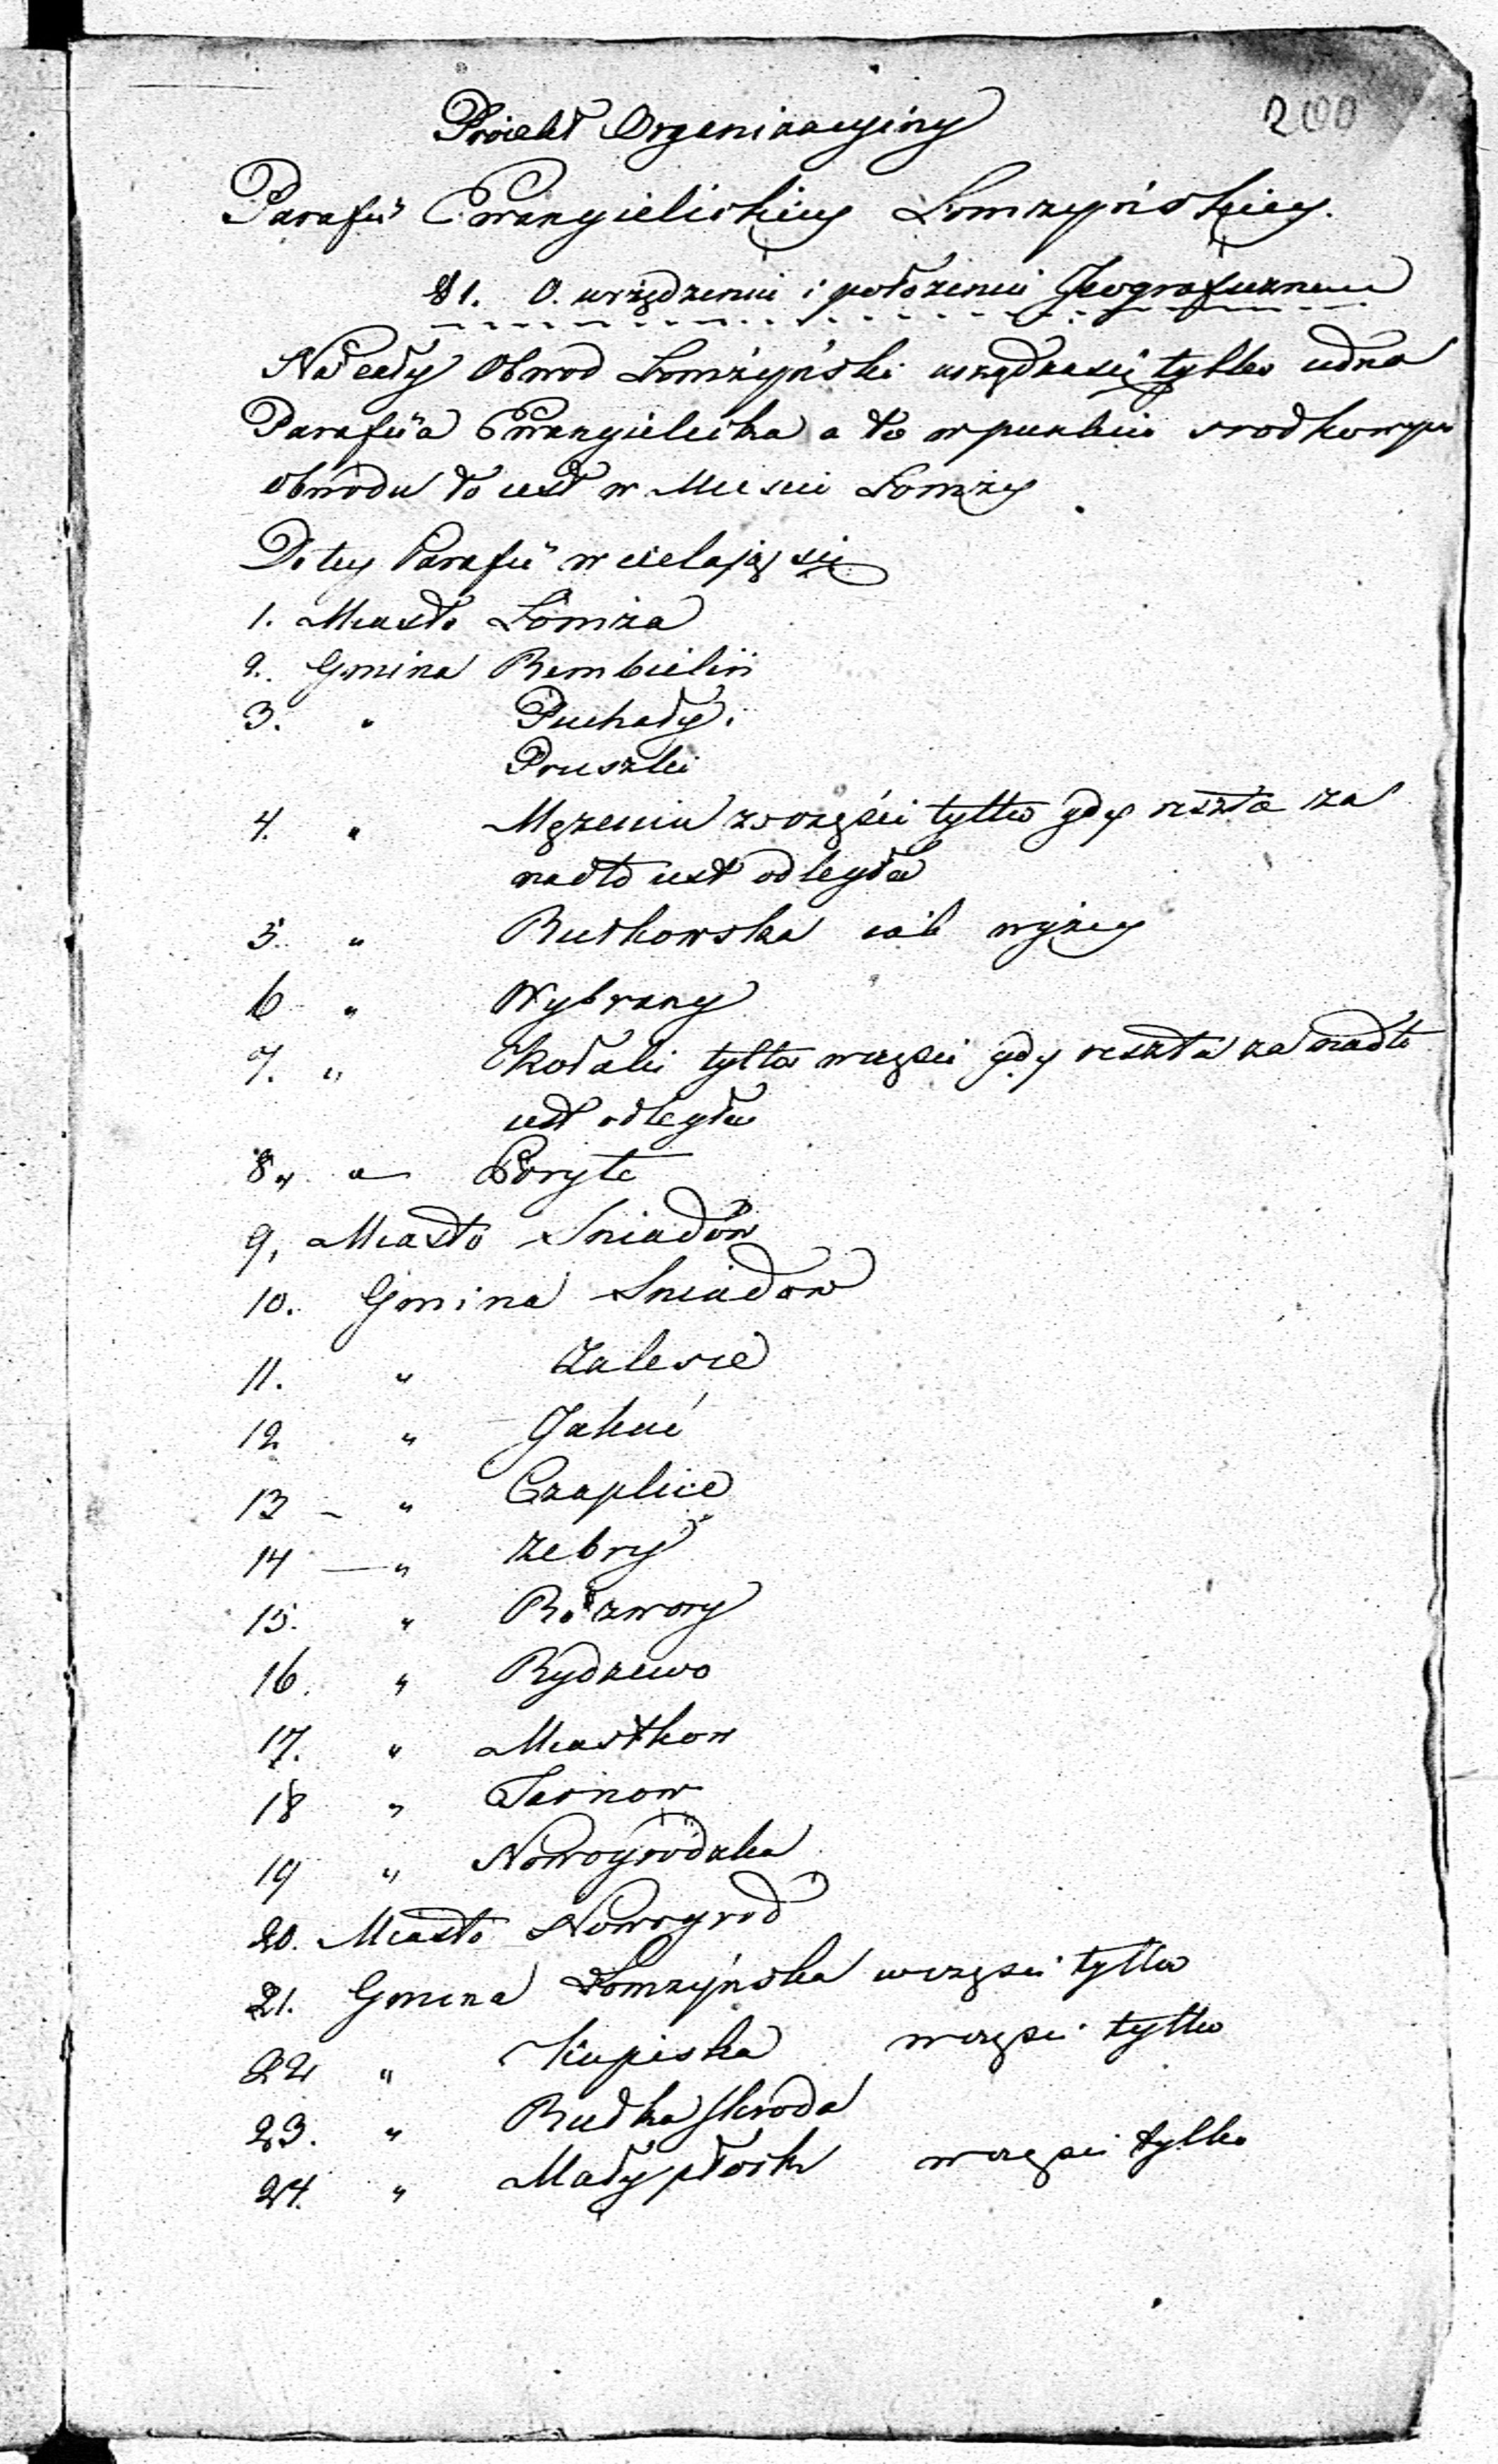 200
Proiekt Organizacyiny
Parafii Ewangielickiey Łomżyńskiey.
§ 1. O. urządzeniu i położeniu Jeograficznem
Na cały Obwod Łomżyński urządza się tylko iedna
Parafiia Ewangielicka a to w punkcie srodkowym
obwodu to iest w Miescie Łomży
Do tey Parafii wcielają się
1. Miasto Łomża
2. Gmina Rembielin
3. " Puchały.
Pruszki
4. " Mężenin w części tylko gdy reszta za
nadto iest odległa
5. " Rutkowska iak wyżey
6 " Wybrany
7. " Chołaki tylko w części gdy reszta za nadto
iest odległa
8. " Poryte
9. Miasto Sniadów
10. Gmina Sniadow
11. " Zalesie
12 " Jakać
13 - " Czaplice
14 — " Zebry
15. " Rozwory
16. " Rydzewo
17. " Miastkow
18 " Tarnow
19 " Nowogrodzka
20. Miasto Nowogrod
21. Gmina Łomżyńska w części tylko
22 " Kupiska w części tylko
23. " Rudka Skroda
24. " Mały płock w części tylko